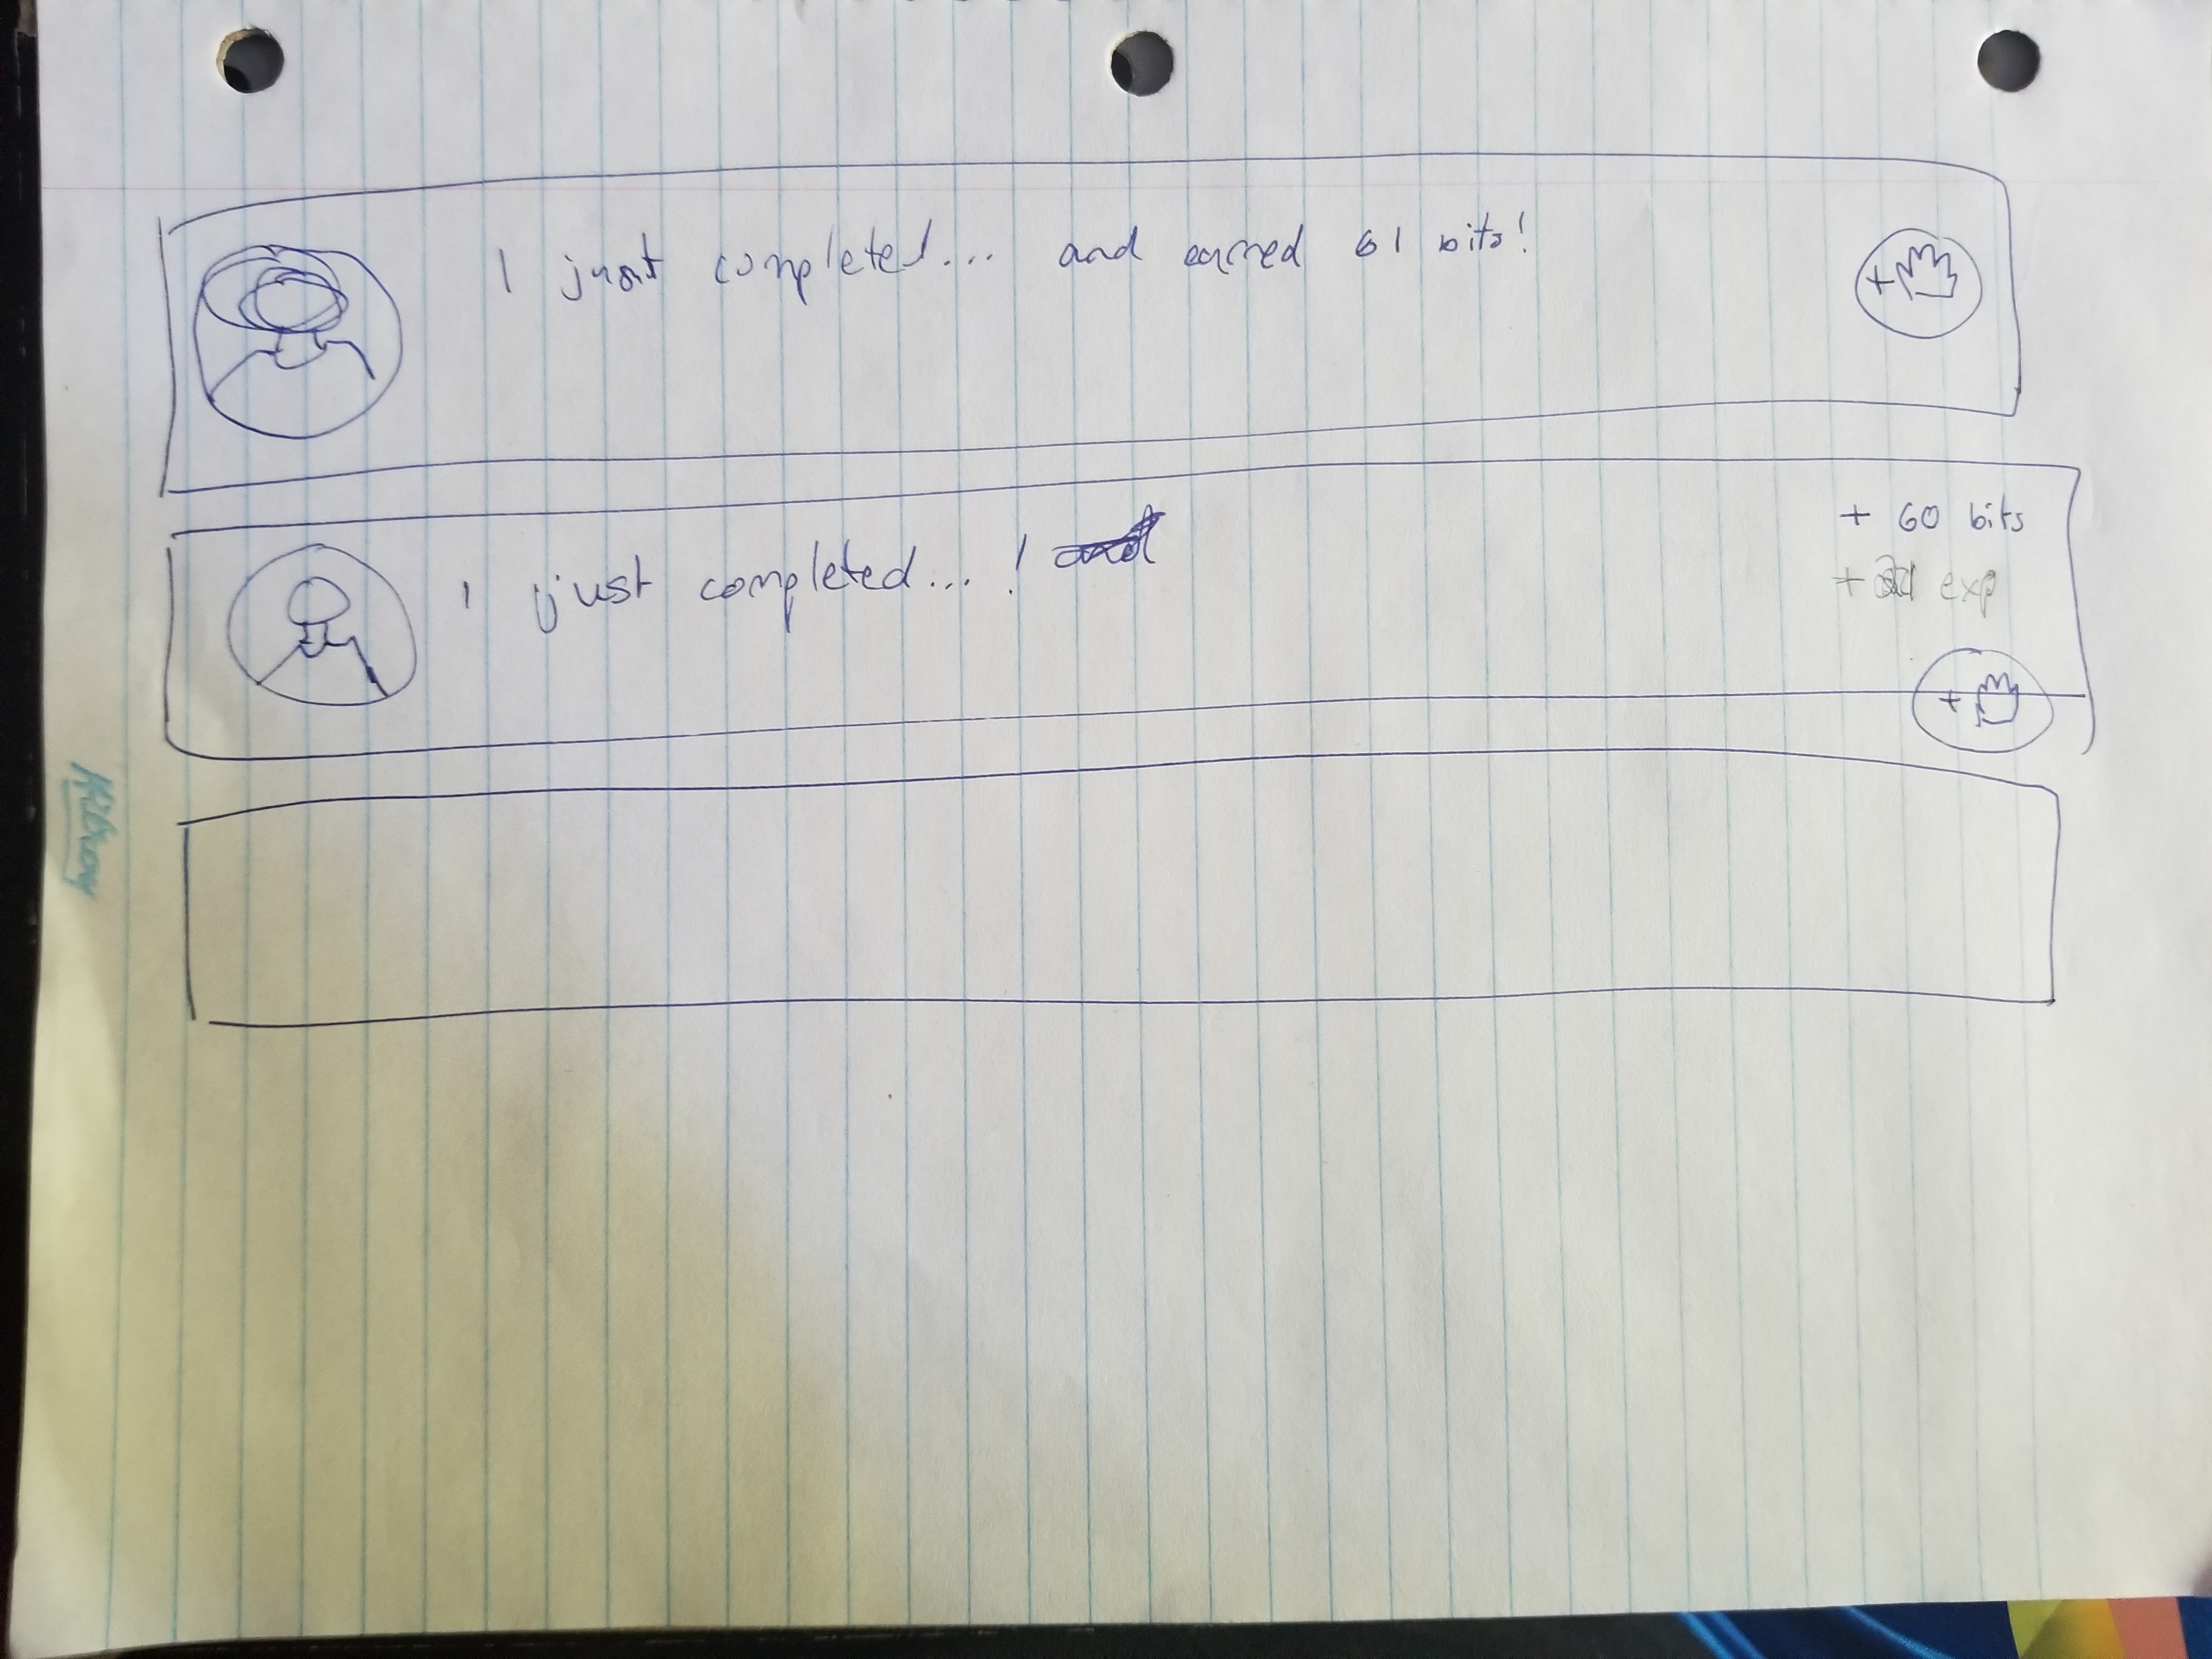 I just completed... and earned 61 bits!
+
I just completed...!
+ 60 bits
+ exp
+